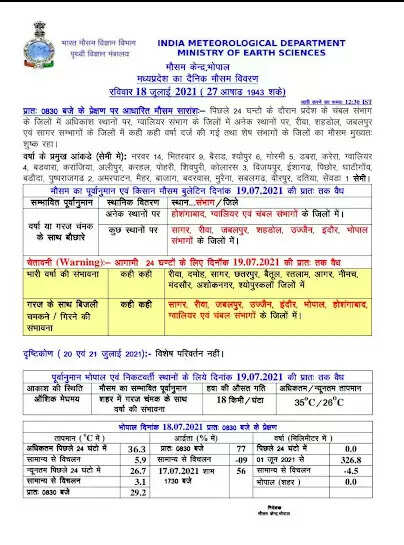 भारत मौसम विज्ञान विभाग
पृथ्वी विज्ञान मंत्रालय
INDIA METEOROLOGICAL DEPARTMENT
MINISTRY OF EARTH SCIENCES
मौसम केन्द्र,भोपाल
मध्यप्रदेश का दैनिक मौसम विवरण
रविवार 18 जुलाई 2021 ( 27 आषाढ 1943 शर्क)
जारी करने का समय: 12:30 IST
प्रातः 0830 बजे के प्रेक्षण पर आधारित मौसम सारांशः– पिछले 24 घन्टो के दौरान प्रदेश के चंबल संभाग
के जिलों में अधिकांश स्थानों पर, ग्वालियर संभाग के जिलों में अनेक स्थानों पर, रीवा, शहडोल, जबलपुर
एवं सागर सम्भागों के जिलों में कही कही वर्षा दर्ज की गई तथा शेष संभागों के जिलों का मौसम मुख्यतः
शुष्क रहा।
वर्षा के प्रमुख आंकडे (सेमी में): नरवर 14, भितरवार 9, बैराड, श्योपुर 6, मोरमी 5, डबरा, करेरा, ग्वालियर
4, बडवारा, कराजिया, अलीपुर, करहल, पोहरी, शिवपुरी, कोलारस 3, विजयपुर, ईशागढ, पिछोर, घाटीगांव,
बडौदा, पुष्पराजगढ 2, अमरपाटन, मैहर, बाजाग, बदरवास, मुरैना, सबलगढ, वीरपुर, दतिया, सेंवढा 1 सेमी।
मौसम का पूर्वानुमान एवं किसान मौसम बुलेटिन दिनांक 19.07.2021 की प्रातः तक वैध
सम्भावित पूर्वानुमान स्थानिक वितरण स्थान ...संभाग/जिले
वर्षा या गरज चंमक के साथ बौछारे
अनेक स्थानो पर होशंगाबाद, ग्वालियर एवं चंबल संभागों के जिलों में।
कुछ स्थानो पर सागर, रीवा, जबलपुर, शहडोल, उज्जैन, इंदौर, भोपाल
संभागों के जिलों में।
चेतावनी (Warning):– आगामी 24 घण्टों के लिए दिनाँक 19.07.2021 की प्रातः तक वैध
भारी वर्षा की संभावना कही कही रीवा, दमोह, सागर, छतरपुर, बैतूल, रतलाम, आगर, नीमच,
मंदसौर, अशोकनगर, श्योपुरकलाँ जिलों में
गरज के साथ बिजली कही कही सागर, रीवा, जबलपुर, उज्जैन, इंदौर, भोपाल, होशंगाबाद,
चमकने / गिरने की ग्वालियर एवं चंबल संभागों के जिलों में।
संभावना
दृष्टिकोण ( 20 एवं 21 जुलाई 2021):- विशेष परिवर्तन नहीं।
पूर्वानुमान भोपाल एवं निकटवर्ती स्थानों के लिये दिनांक 19.07.2021 की प्रातः तक वैध
आकाश की स्थिति मौसम का सम्भावित पूर्वानुमान हवा की औसत गति अधिकतम/न्यूनतम तापमान
आँशिक मेघमय शहर में गरज चंमक के साथ 18 किमी/घंटा 35°C/26°C
वर्षा की संभावना
भोपाल दिनांक 18.07.2021 प्रातः 0830 बजे के प्रेक्षण
तापमान (°C में) आर्द्रता (% में) वर्षा (मिलिमीटर में)
अधिकतम पिछले 24 घंटो में 36.3 प्रातः 0830 बजे 77 पिछले 24 घंटो में 0.0
सामान्य से विचलन 5.9 सामान्य से विचलन -09 01 जून 2021 से 326.8
न्यूनतम पिछले 24 घंटो में 26.7 17.07.2021 शाम 56 सामान्य से विचलन -4.5
सामान्य से विचलन 3.1 1730 बजे भोपाल (शहर) 0.0
प्रातः 0830 बजे 29.2
निदेशक
मौसम केन्द्र भोपाल